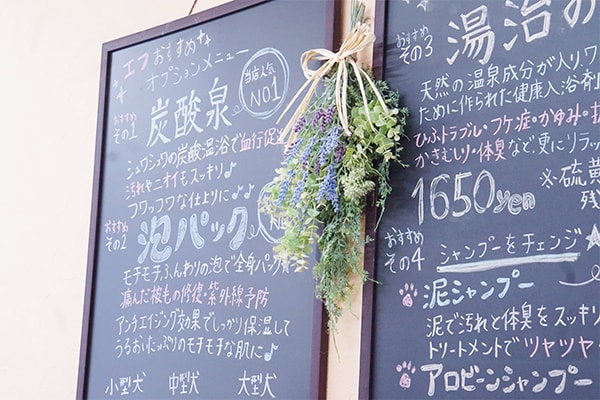 エフおすすめ
オプションメニュー
おすすめ
その1
炭酸泉
当店人気
No1
シュワシュワの炭酸温浴で血行促
汚れやニオイもスッキリ♪
フワッフワな仕上りに♪♪
おすすめ
その2
泡パック
モチモチふんわりの泡で全身パック
痛んだ被もの修復・紫外線予防
アンチエイジング効果でしっかり保湿して
うるおいたっぷりのモチモチな肌に♪
小型犬 中型犬 大型犬
おすすめ
その3
湯治の
天然の温泉成分が入り、ワ
ために作られた健康入浴剤
ひふトラブル・フケ症・かゆみ・抜
かさむしり・体臭など更にリラッ
1650yen
※硫黄
残
おすすめ
その4
シャンプーをチェンジ
泥シャンプー
泥で汚れと体臭をスッキリ
トリートメントでツヤツヤ
アロビーンシャンプー